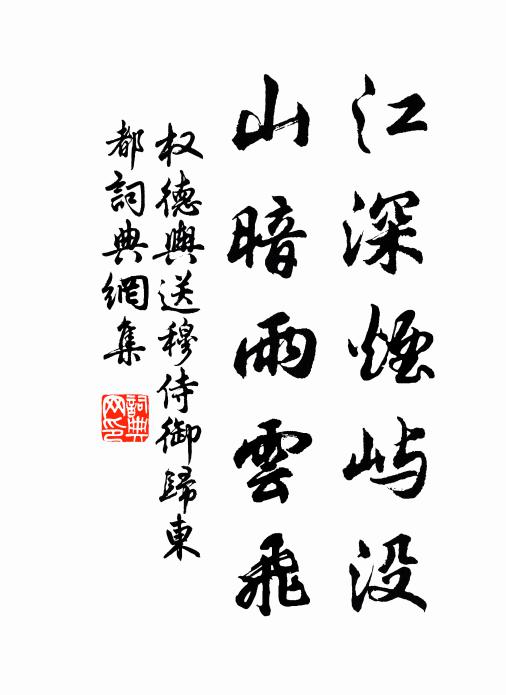 江深煙屿没
山暗雨雲飛
权德輿送穆侍御歸東
都詞典網集
詞典
网印